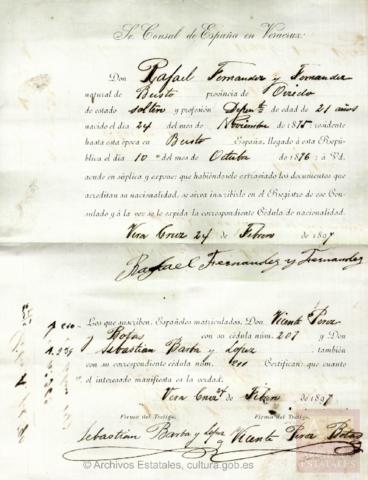 Sr. Consul de España en Veracruz:
Don Rafael Fernandez y Fernandez
natural de provincia de Oviedo
de estado soltero y profesión Dependte de edad de 21 años
nacido el dia 24 del mes de Noviembre de 1875 residente
hasta esta época en España, llegado á esta Repú-
blica el dia 10 del mes de Octubre de 1896 á Vd.
acude en súplica y expone: que habiéndosele extraviado los documentos que
acreditan su nacionalidad, se sirva inscribirlo en el Registro de ese Con-
sulado y á la vez se le expida la correspondiente Cédula de nacionalidad.
Vera Cruz 24 de Febrero de 1897
Rafael Fernandez y Fernandez
Los que suscriben, Españoles matriculados, Don Vicente Perez
con su cédula núm. 207 y Don
Sebastian Barba y Lopez también
con su correspondiente cédula núm. Certifican: que cuanto
el interesado manifiesta es la verdad.
Vera Cruz de Febrero de 1897
Firma del Testigo, Firma del Testigo,
Sebastian Barba y Lopez Vicente Perez
© Archivos Estatales, cultura.gob.es
ESTATALES